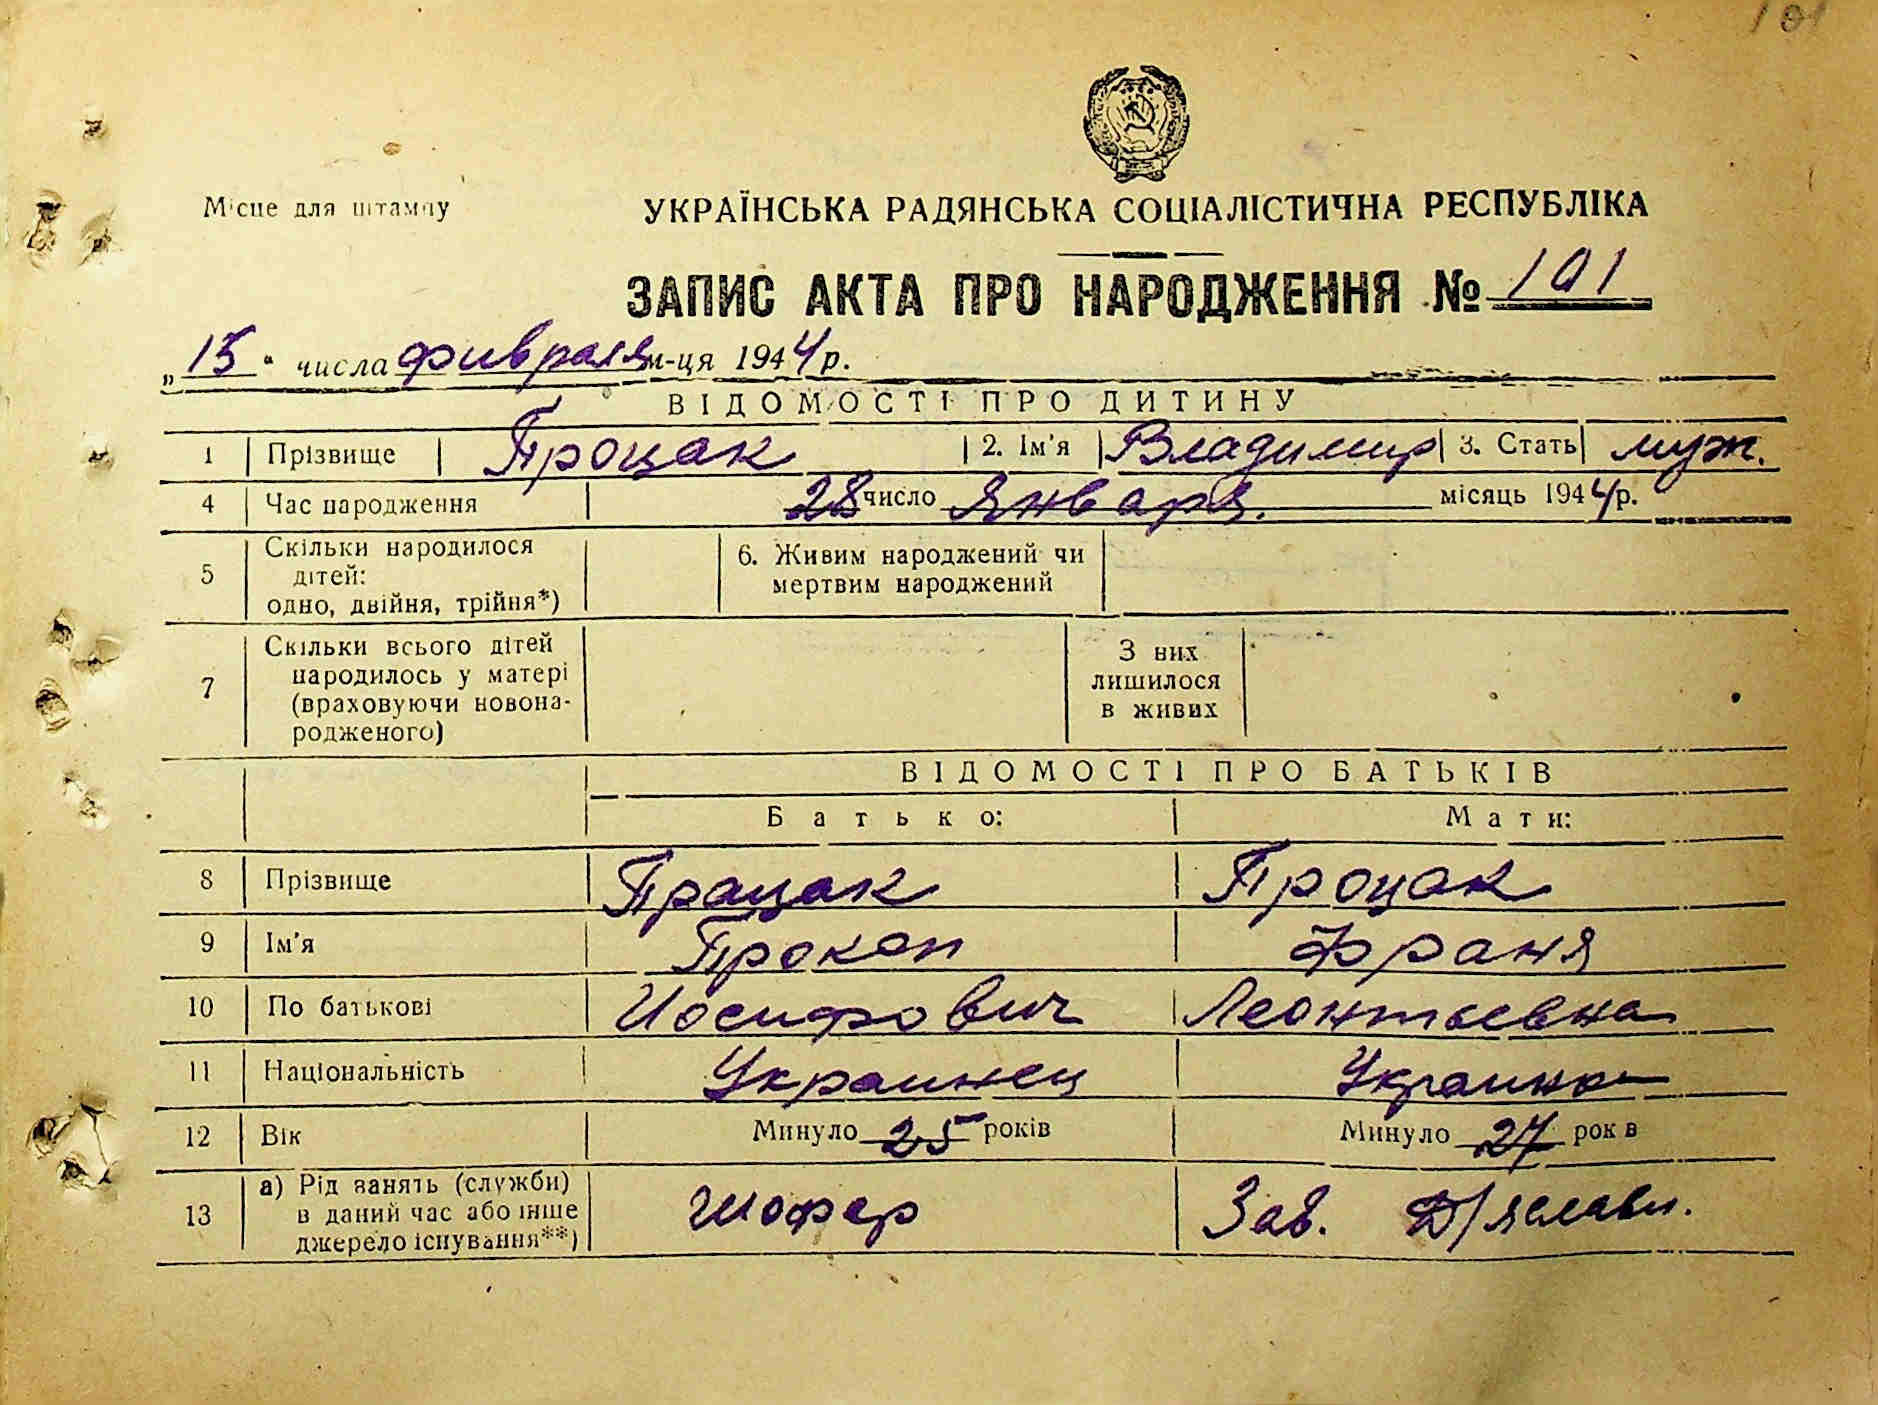 101
Місце для штампу
УКРАЇНСЬКА РАДЯНСЬКА СОЦІАЛІСТИЧНА РЕСПУБЛІКА
ЗАПИС АКТА ПРО НАРОДЖЕННЯ № 101
„15“ числа фивраля м-ця 1944 р.
ВІДОМОСТІ ПРО ДИТИНУ
1 Прізвище Процак 2. Ім'я Владимир 3. Стать муж.
4 Час народження 28 число Января. місяць 1944 р.
5 Скільки народилося дітей: одно, двійня, трійня*) 6. Живим народжений чи мертвим народжений
7 Скільки всього дітей народилось у матері (враховуючи новонародженого) З них лишилося в живих
ВІДОМОСТІ ПРО БАТЬКІВ
Батько: Мати:
8 Прізвище Працак Процак
9 Ім'я Прокоп Франя
10 По батькові Иосифович Леонтьевна
11 Національність Украинец Украинка
12 Вік Минуло 25 років Минуло 27 років
13 а) Рід занять (служби) в даний час або інше джерело існування**) Шофер Зав. Д/яслами.